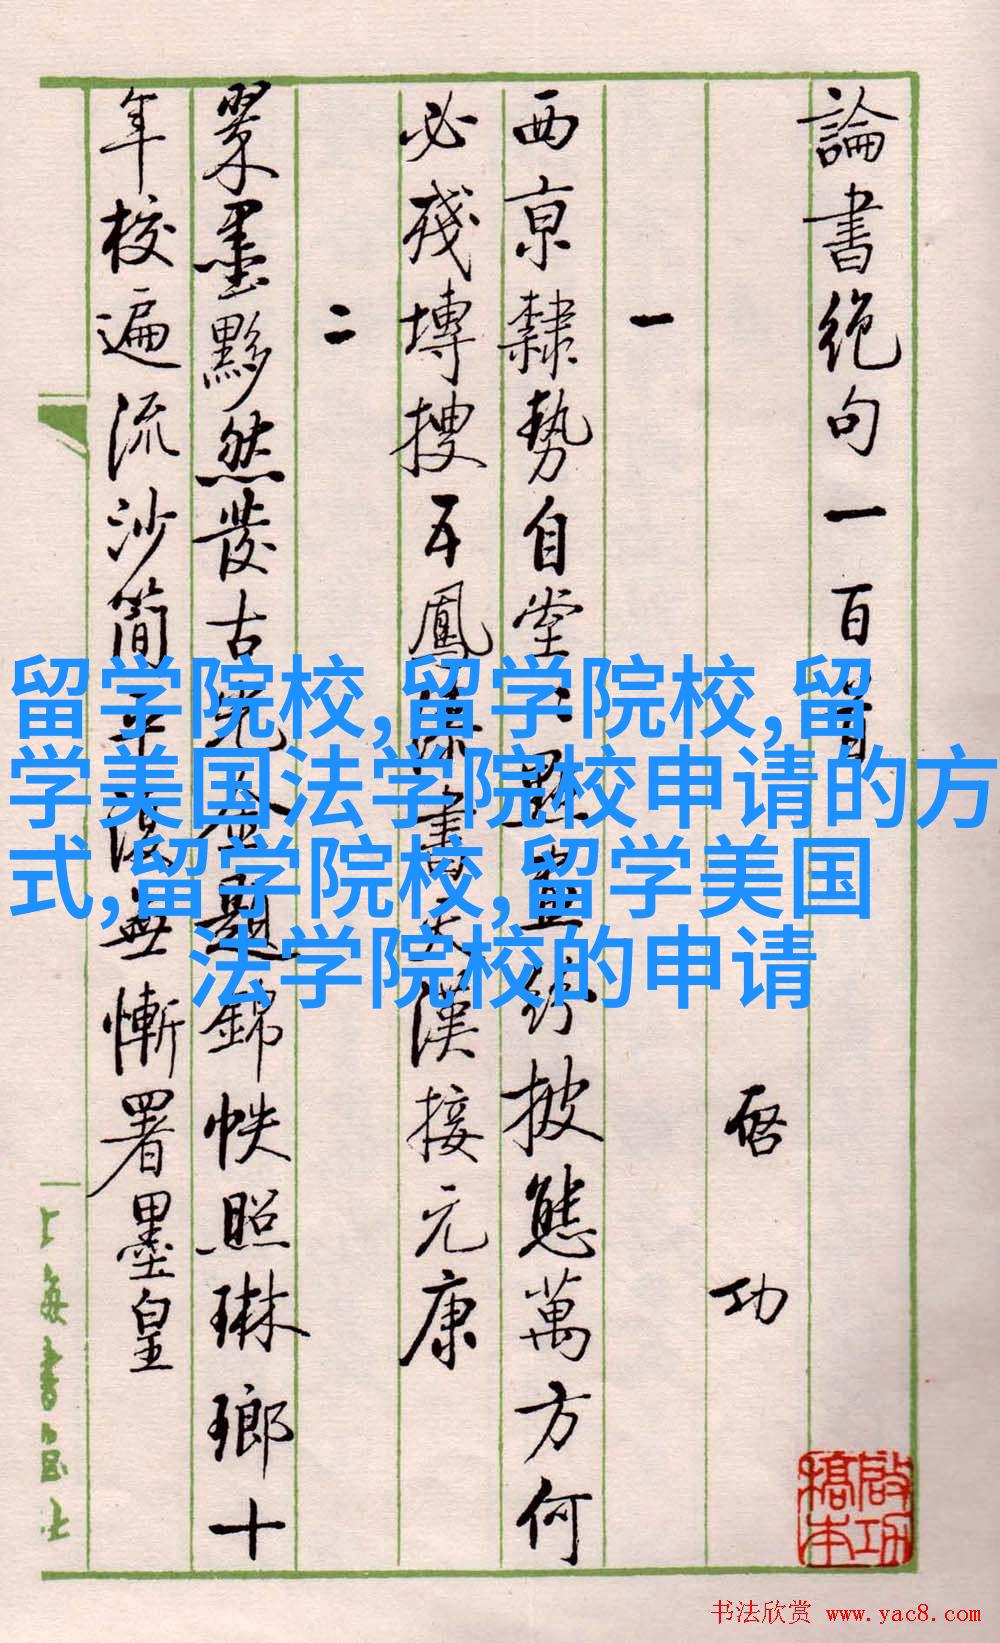 論書絕句一百首
啓功
一
西京隸勢自堂〻點畫紛披態萬方何
必殘塼搜五鳳漆書天漢接元康
二
翠墨黟然發古光金題錦帙照琳瑯十
年校遍流沙簡平復無慚署墨皇
留学院校,留学院校,留
学美国法学院校申请的方
式,留学院校,留学美国
法学院校的申请
上海書画社
啟功稿本
书法欣赏 www.yac8.com